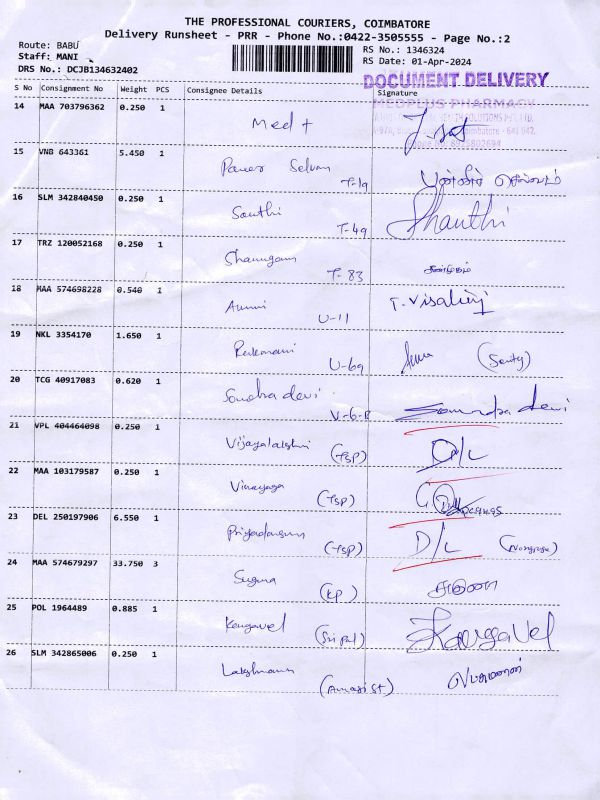 THE PROFESSIONAL COURIERS, COIMBATORE
Delivery Runsheet - PRR - Phone No.:0422-3505555 - Page No.:2
Route: BABU RS No.: 1346324
Staff: MANI RS Date: 01-Apr-2024
DRS No.: DCJB134632402
DOCUMENT DELIVERY
S No Consignment No Weight PCS Consignee Details Signature
MEDPLUS PHARMACY
14 MAA 703796362 0.250 1 Med +
15 VNB 643361 5.450 1 Panner Selvam T-19 பன்னீர் செல்வம்
16 SLM 342840450 0.250 1 Santhi T-49 Shanthi
17 TRZ 120052168 0.250 1 Shanugam T-83 சண்முகம்
18 MAA 574698228 0.540 1 U-11 T. Visalinj
19 NKL 3354170 1.650 1 Rukmani U-69
20 TCG 40917083 0.620 1 Soundra devi V-6-B Soundra devi
21 VPL 404464098 0.250 1 Vijayalakshmi (TSP) D/L
22 MAA 103179587 0.250 1 Vinayaga (TSP)
23 DEL 250197906 6.550 1 Priyadarsun (TSP) D/L
24 MAA 574679297 33.750 3 Suguna (KP) சுகுணா
25 POL 1964489 0.885 1 Kangavel (Sripal) Kangavel
26 SLM 342865006 0.250 1 Lakshmanan